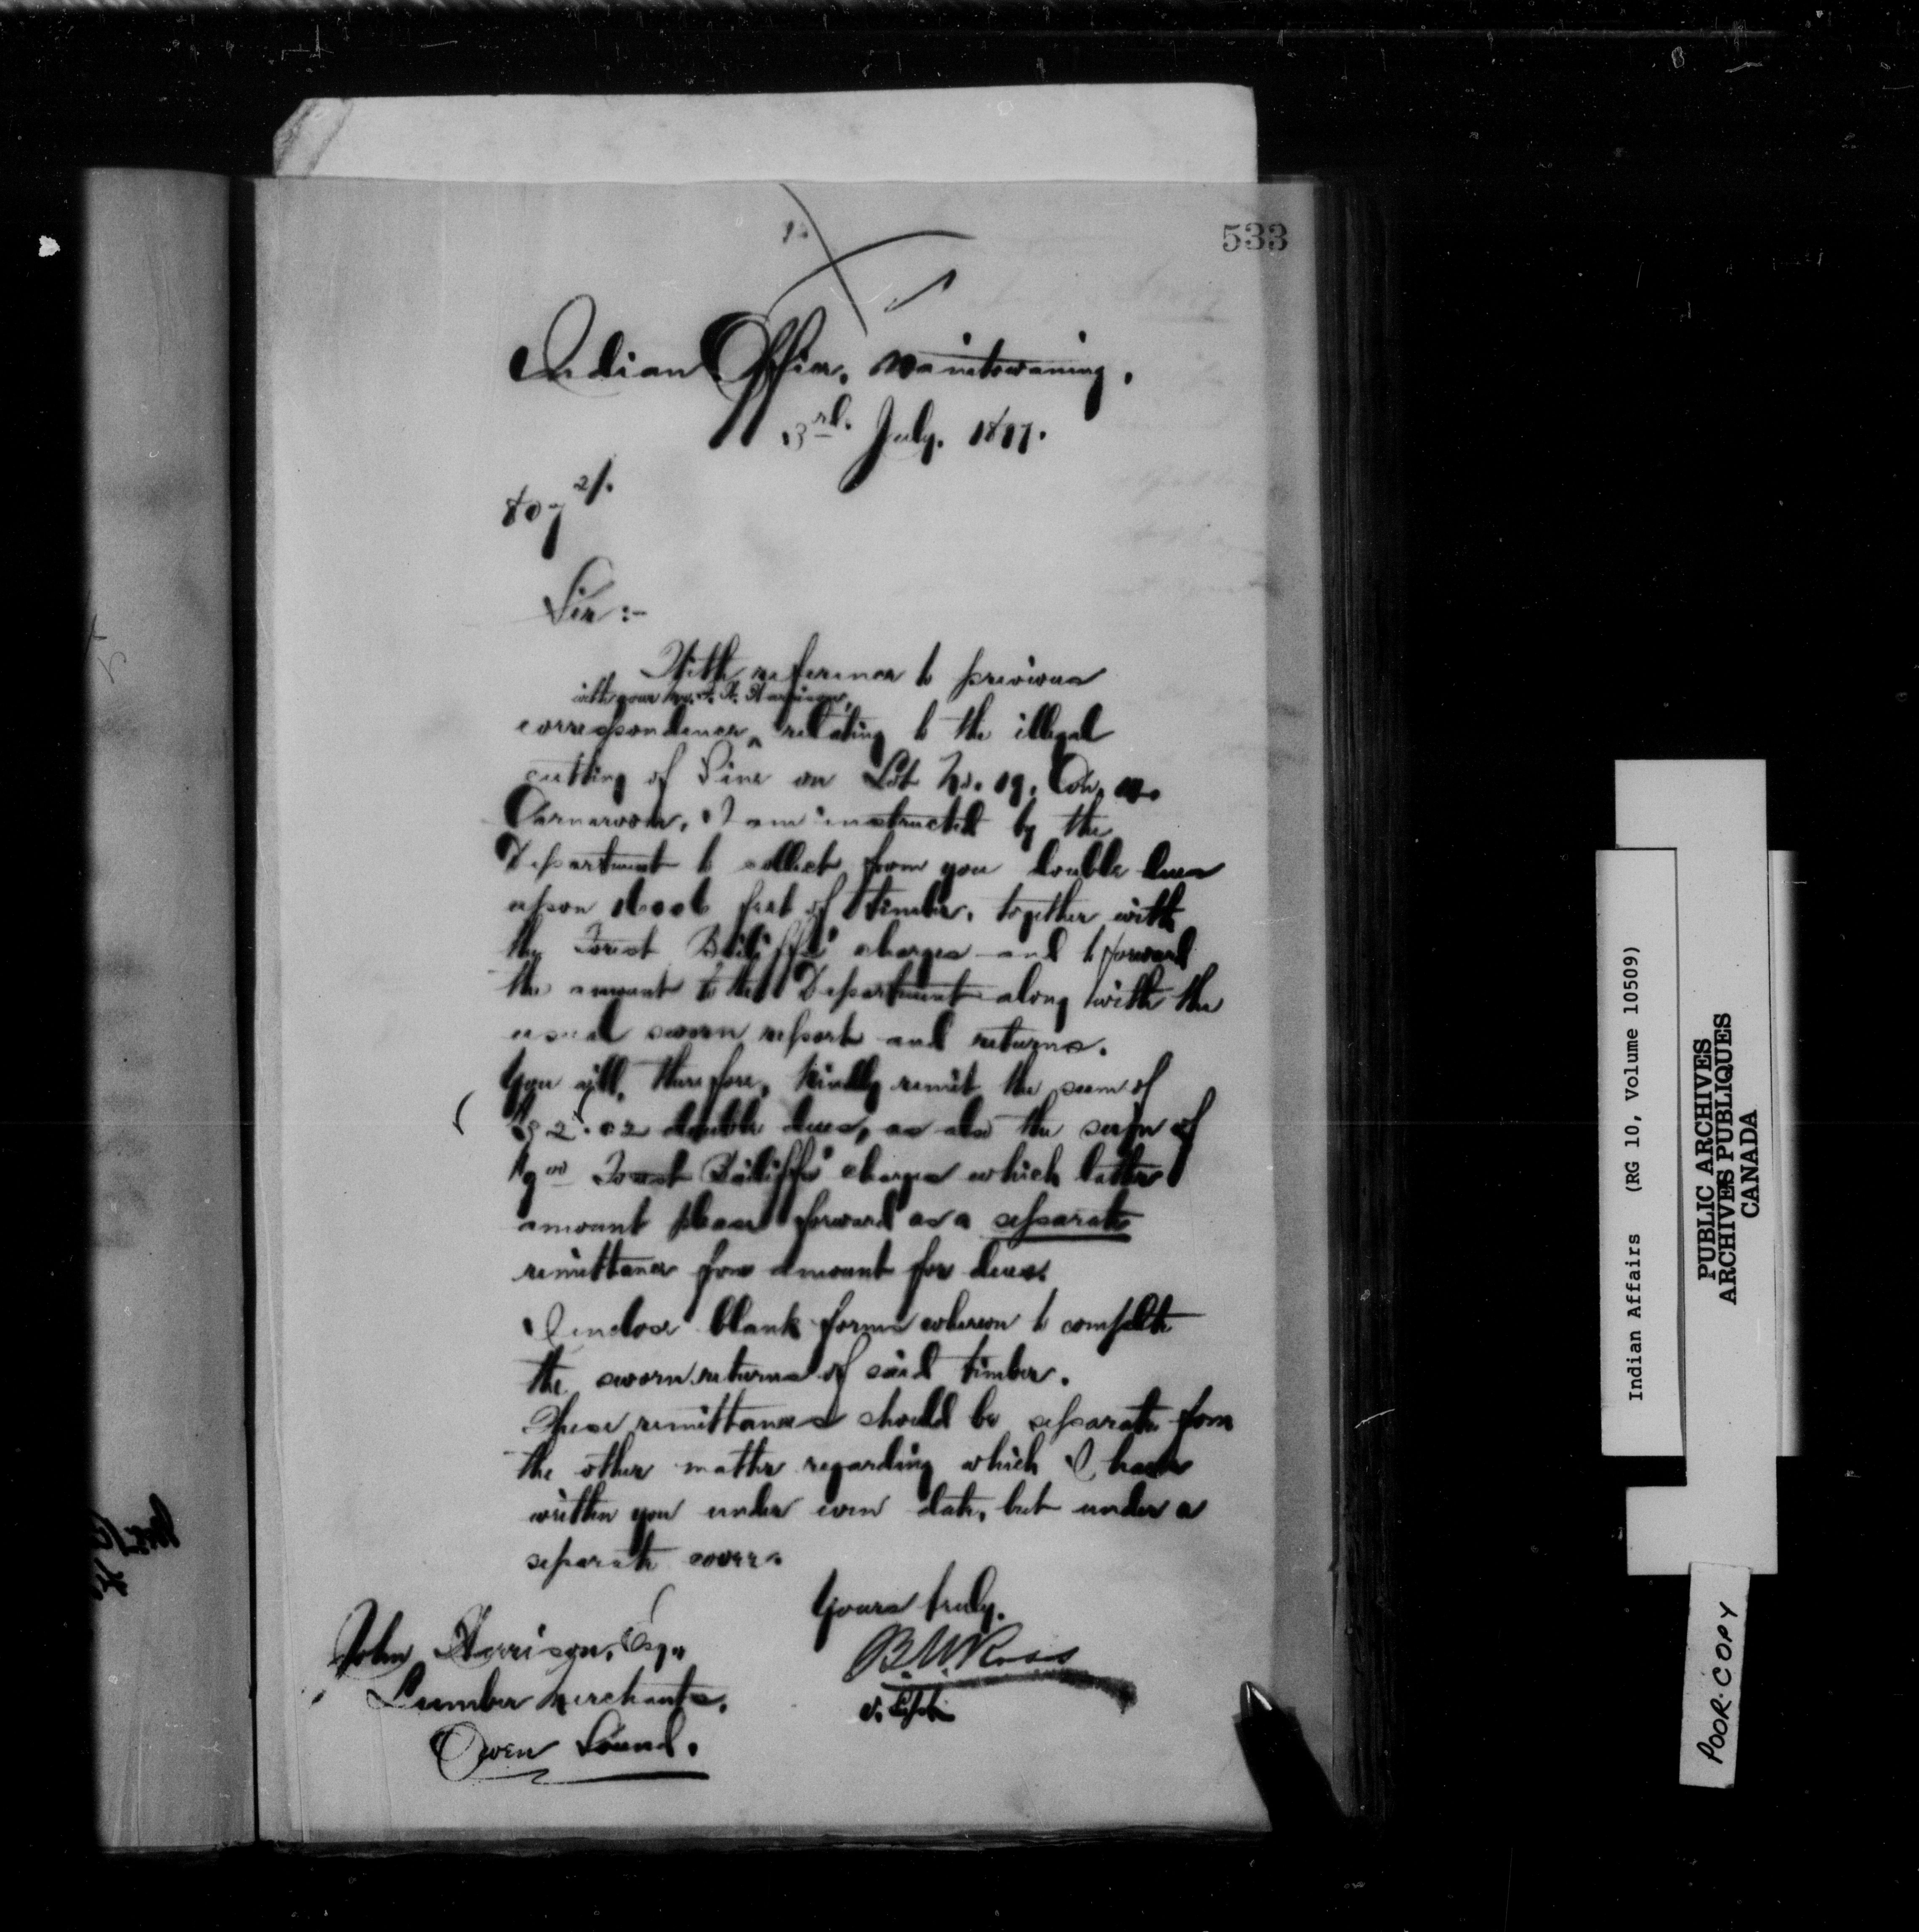 533
Indian Office, Manitowaning,
3rd. July. 1897.
Sir:-
With reference to previous
with your Mr. Harrison,
correspondence relating to the illegal
cutting of Pine on Lot No. 19, Con.
Carnarvon, I am instructed by the
Department to collect from you double dues
upon feet of timber, together with
the Forest Bailiffs' charges and to forward
the amount to the Department along with the
usual sworn report and returns.
You will, therefore, kindly remit the sum of
double dues, as also the sum of
$9.00 Forest Bailiffs' charges which latter
amount please forward as a separate
remittance from amount for dues.
I enclose blank forms whereon to complete
the sworn returns of said timber.
These remittances should be separate from
the other matter regarding which I have
written you under even date, but under a
separate cover.
Yours truly,
B W Ross
John Harrison, Esq.,
Lumber Merchants,
Owen Sound.
Indian Affairs (RG 10, Volume 10509)
PUBLIC ARCHIVES
ARCHIVES PUBLIQUES
CANADA
POOR COPY